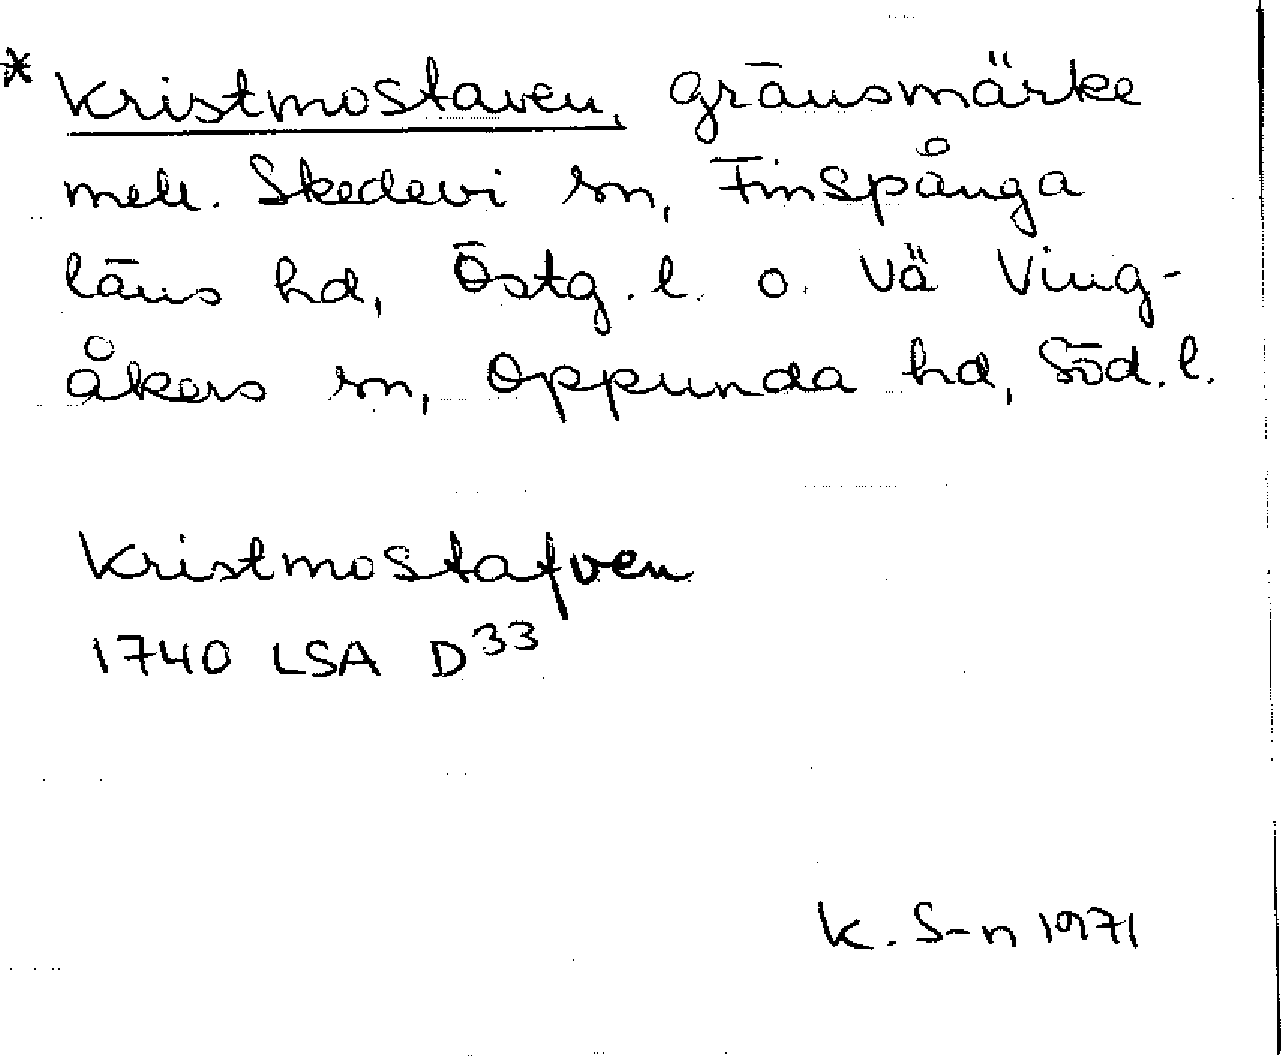 * Kristmostaven, gränsmärke
mell. Skedevi sn, Finspånga
läns hd, Östg. l. o. Vä Ving-
åkers sn, Oppunda hd, Söd. l.
Kristmostafven
1740 LSA D33
K. S-n 1971